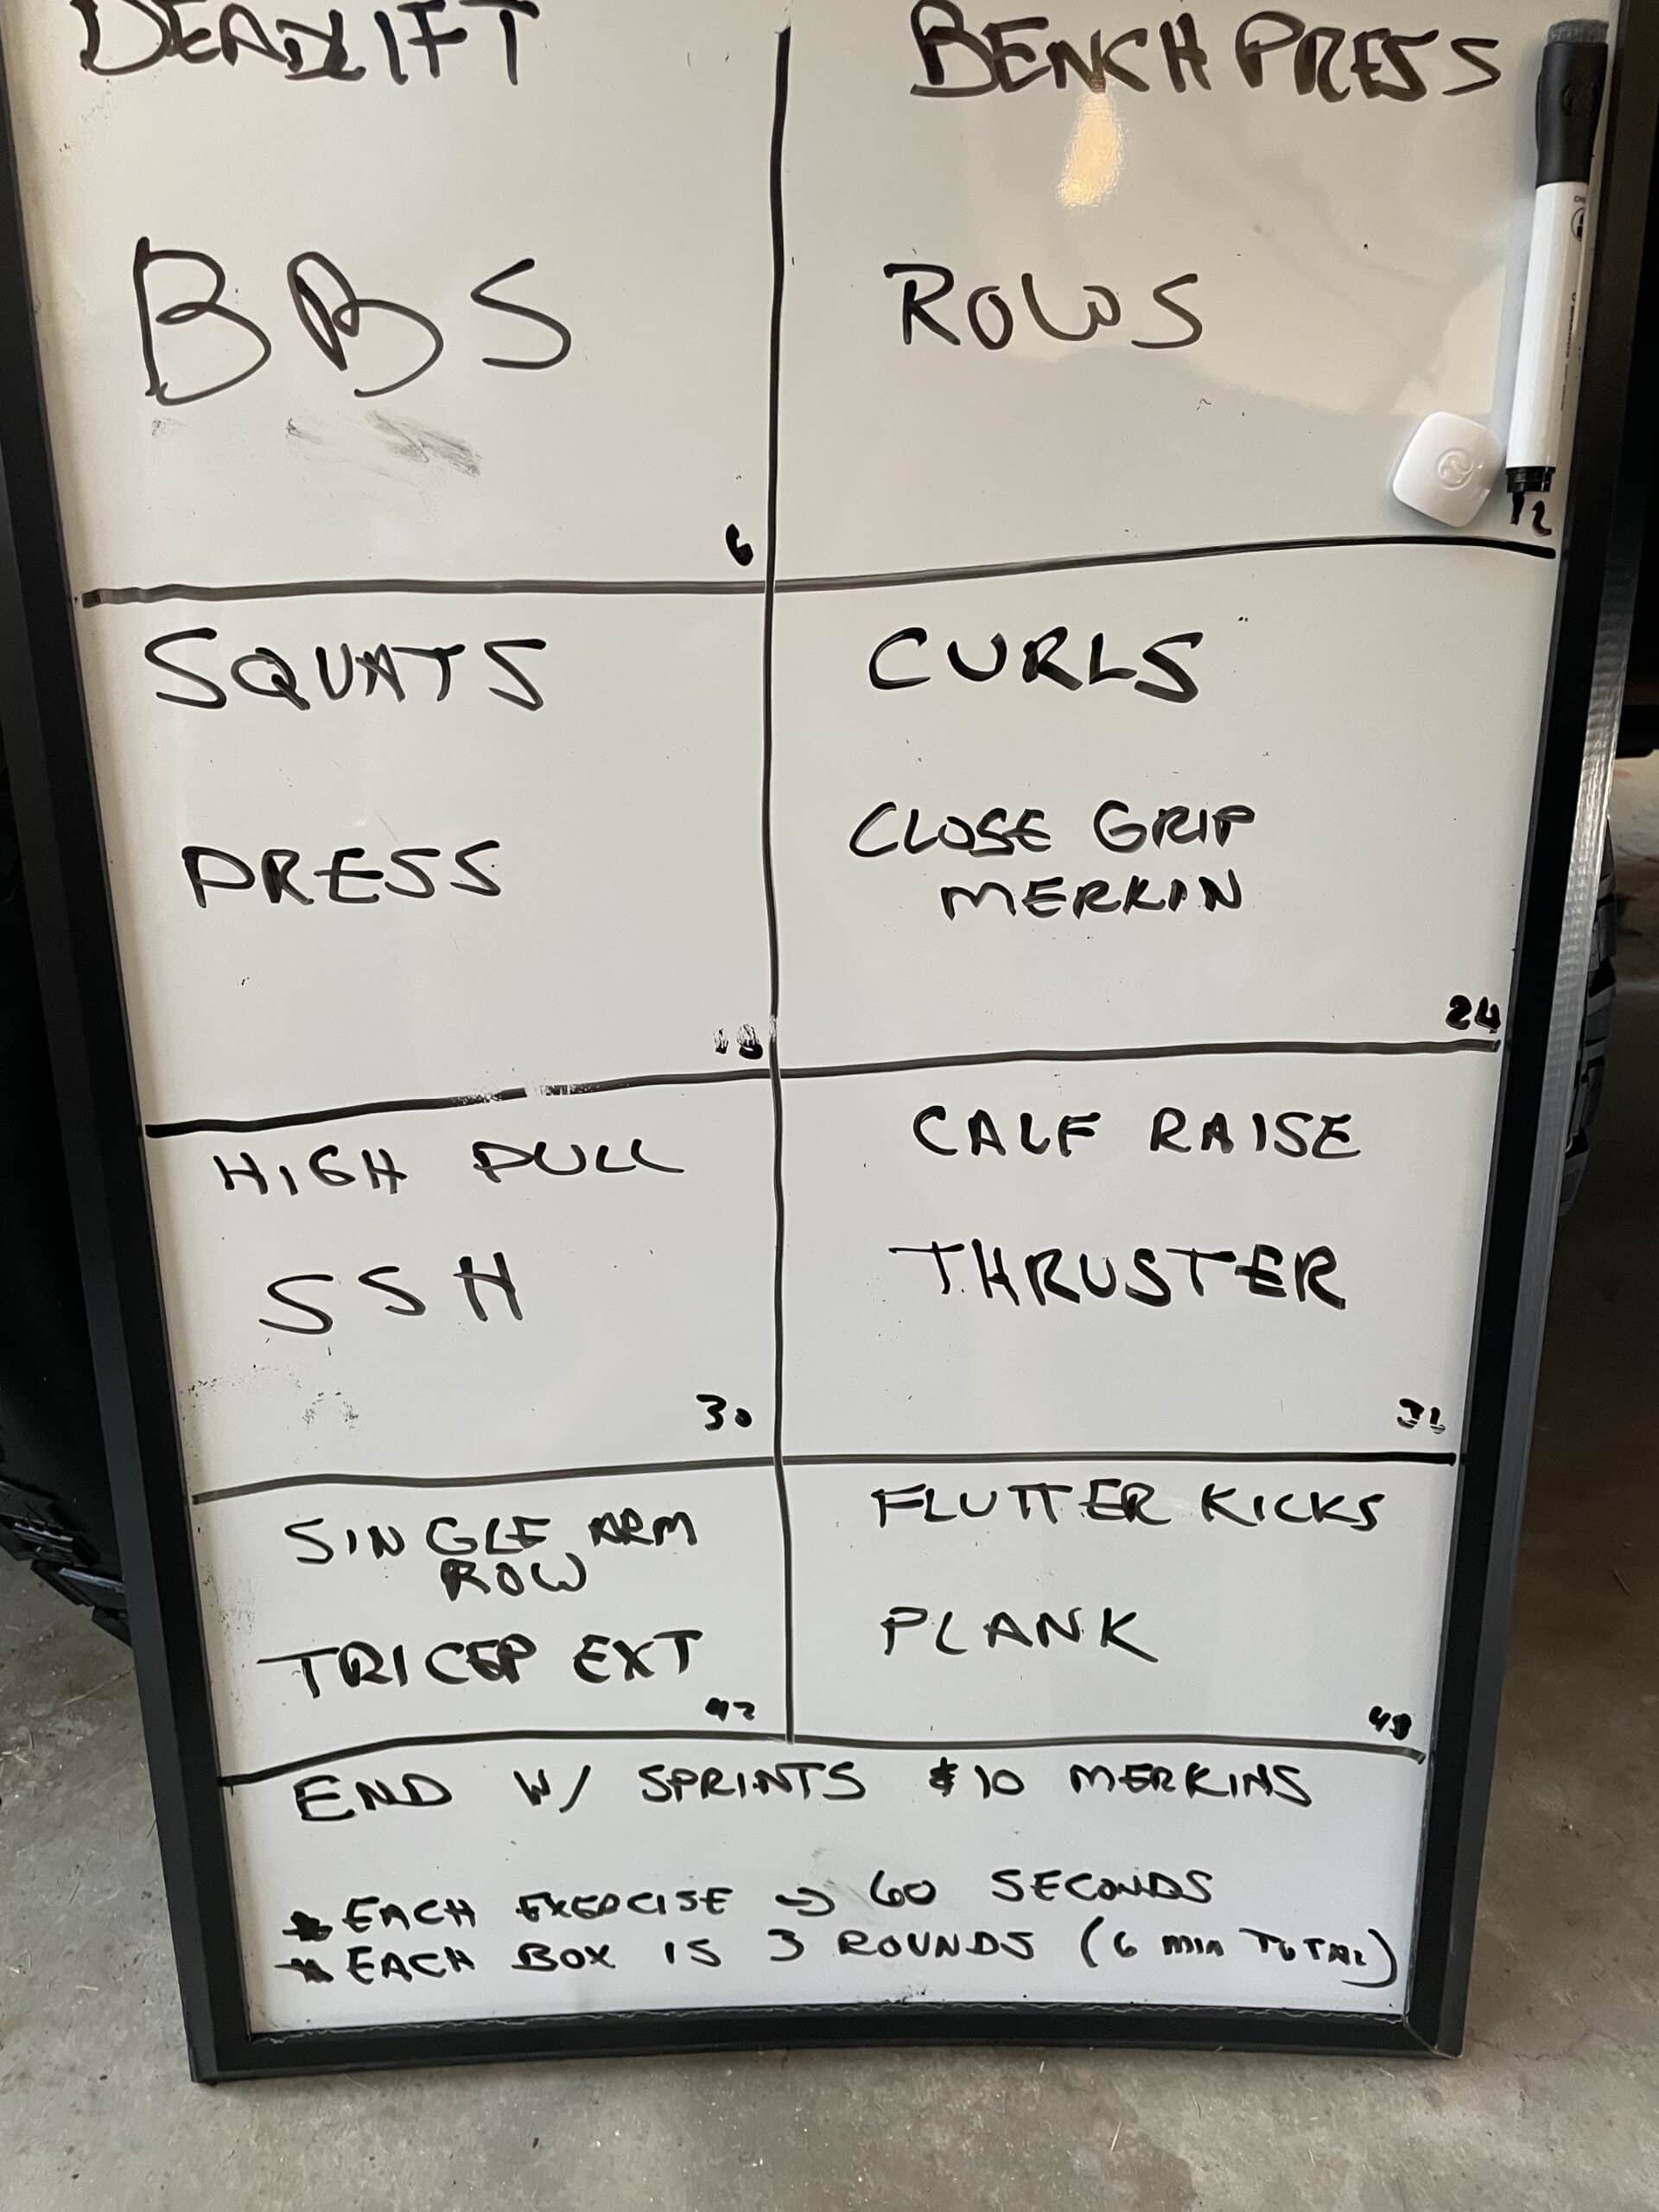 DEADLIFT
BENCH PRESS
BBS
ROWS
6
12
SQUATS
CURLS
PRESS
CLOSE GRIP
MERKIN
18
24
HIGH PULL
CALF RAISE
SSH
THRUSTER
30
SINGLE ARM
ROW
FLUTTER KICKS
TRICEP EXT
PLANK
42
48
END W/ SPRINTS & 10 MERKINS
* EACH EXERCISE → 60 SECONDS
* EACH BOX IS 3 ROUNDS (6 MIN TOTAL)